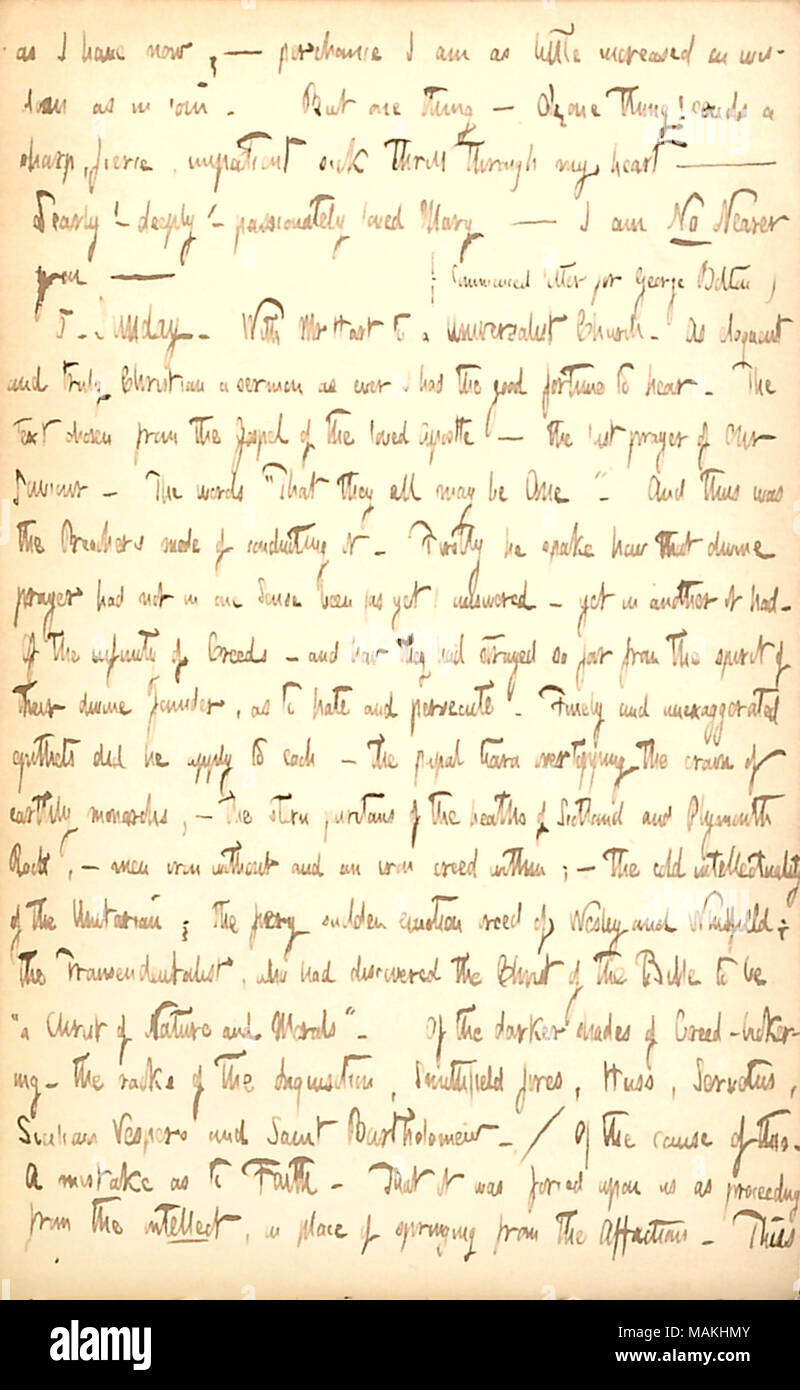 as I have now ; — perchance I am as little increased in wis-
dom as in coin. But one thing — Oh, one thing! sends a
sharp, fierce, impatient sick thrill through my heart —
Dearly! – deeply! – passionately loved Mary — I am No Nearer
you — ( Commenced letter for George Bolton )
5. Sunday. With Mr Hart to a Universalist Church. As eloquent
and truly Christian a sermon as ever I had the good fortune to hear. The
text chosen from the Gospel of the loved apostle — the last prayer of Our
Saviour – The words "That they all may be One". And thus was
the Preachers mode of conducting it. Firstly he spake how that divine
prayer had not in one sense been (as yet) answered – yet in another it had.
Of the infinity of Creeds – and how they had strayed so far from the spirit of
their divine founder, as to hate and persecute. Finely and unexaggerated
epithets did he apply to each – the papal tiara overtopping the crown of
earthly monarchs, – the stern puritans of the heaths of Scotland and Plymouth
Rock, – men iron without and an iron creed within ; – the cold intellectuality
of the Unitarian ; the fiery sudden emotion creed of Wesley and Whitfield ;
the Transendentalist, who had discovered the Christ of the Bible to be
"a Christ of Nature and Morals". Of the darker shades of Creed-bicker-
ing – the racks of the Inquisition, Smithfield fires, Huss, Servetus,
Sicilian Vespers and Saint Bartholomew. / Of the cause of this.
A mistake as to Faith – That it was forced upon us as proceeding
from the intellect, in place of springing from the Affections. This
alamy
Image ID: MAKHMY
www.alamy.com